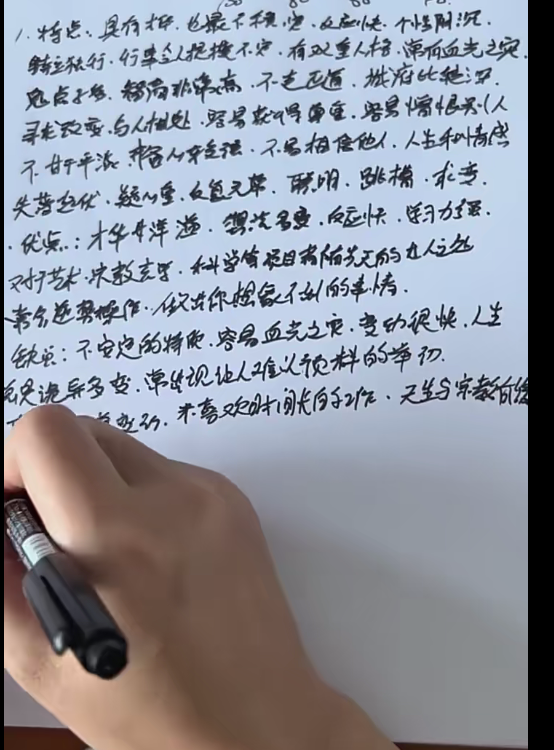 1.特点：具有才华.也最不稳定.反应快.个性阴沉.
特立独行.行事令人捉摸不定.有双重人格.常有血光之灾.
鬼点子多.智商非常高.不走正道.城府比较深.
寻求改变.与人相处.容易获得尊重.容易憎恨别人
不甘于平淡.野心难.不易相信他人.人生和情感
失落起伏.疑心重.反复无常.聪明.跳槽.求变.
.优点：才华洋溢.想法多变.反应快.学习力强.
对于艺术.宗教玄学.科学等项目有着先天的过人之处
喜欢逆势操作.做出你想象不到的事情.
缺点：不安定的特质.容易血光之灾.变动很快.人生
诡异多变.常出现让人难以预料的举动.
变动.不喜欢时间长的工作.天生与宗教有缘